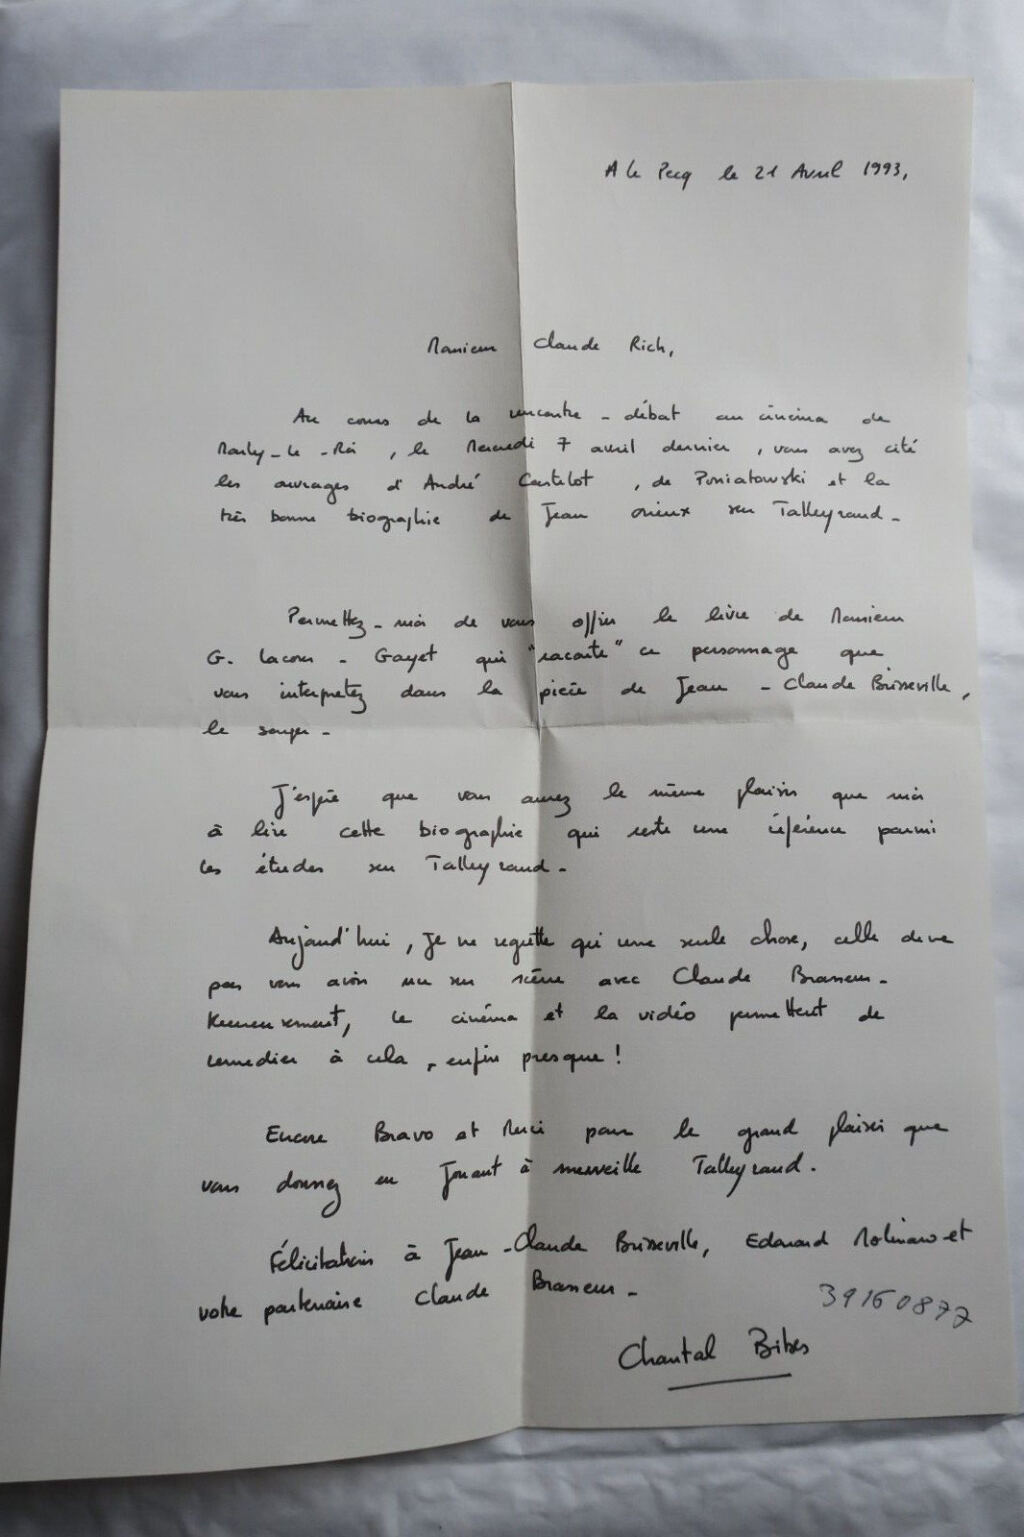 A Le Pecq le 21 Avril 1993,
Monsieur Claude Rich,
Au cours de la rencontre - débat au cinéma de
Marly-le-Roi, le Mercredi 7 avril dernier, vous avez cité
les ouvrages d'André Castelot, de Poniatowski et la
très bonne biographie de Jean Orieux sur Talleyrand -
Permettez-moi de vous offrir le livre de Monsieur
G. Lacour - Gayet qui "raconte" ce personnage que
vous interpretez dans la pièce de Jean - Claude Brisseville,
le souper -
J'espère que vous aurez le même plaisir que moi
à lire cette biographie qui reste une référence parmi
les études sur Talleyrand -
Aujourd'hui, je ne regrette qu'une seule chose, celle de ne
pas vous avoir vu sur scène avec Claude Brasseur -
Heureusement, le cinéma et la vidéo permettent de
remedier à cela, enfin presque!
Encore Bravo et Merci pour le grand plaisir que
vous donnez en jouant à merveille Talleyrand.
Félicitations à Jean-Claude Brisseville, Edouard Molinaro et
votre partenaire Claude Brasseur -
39160877
Chantal Bibes